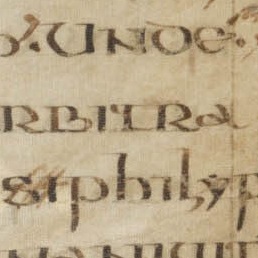 UNDE
RBITRA
SIPHILYP